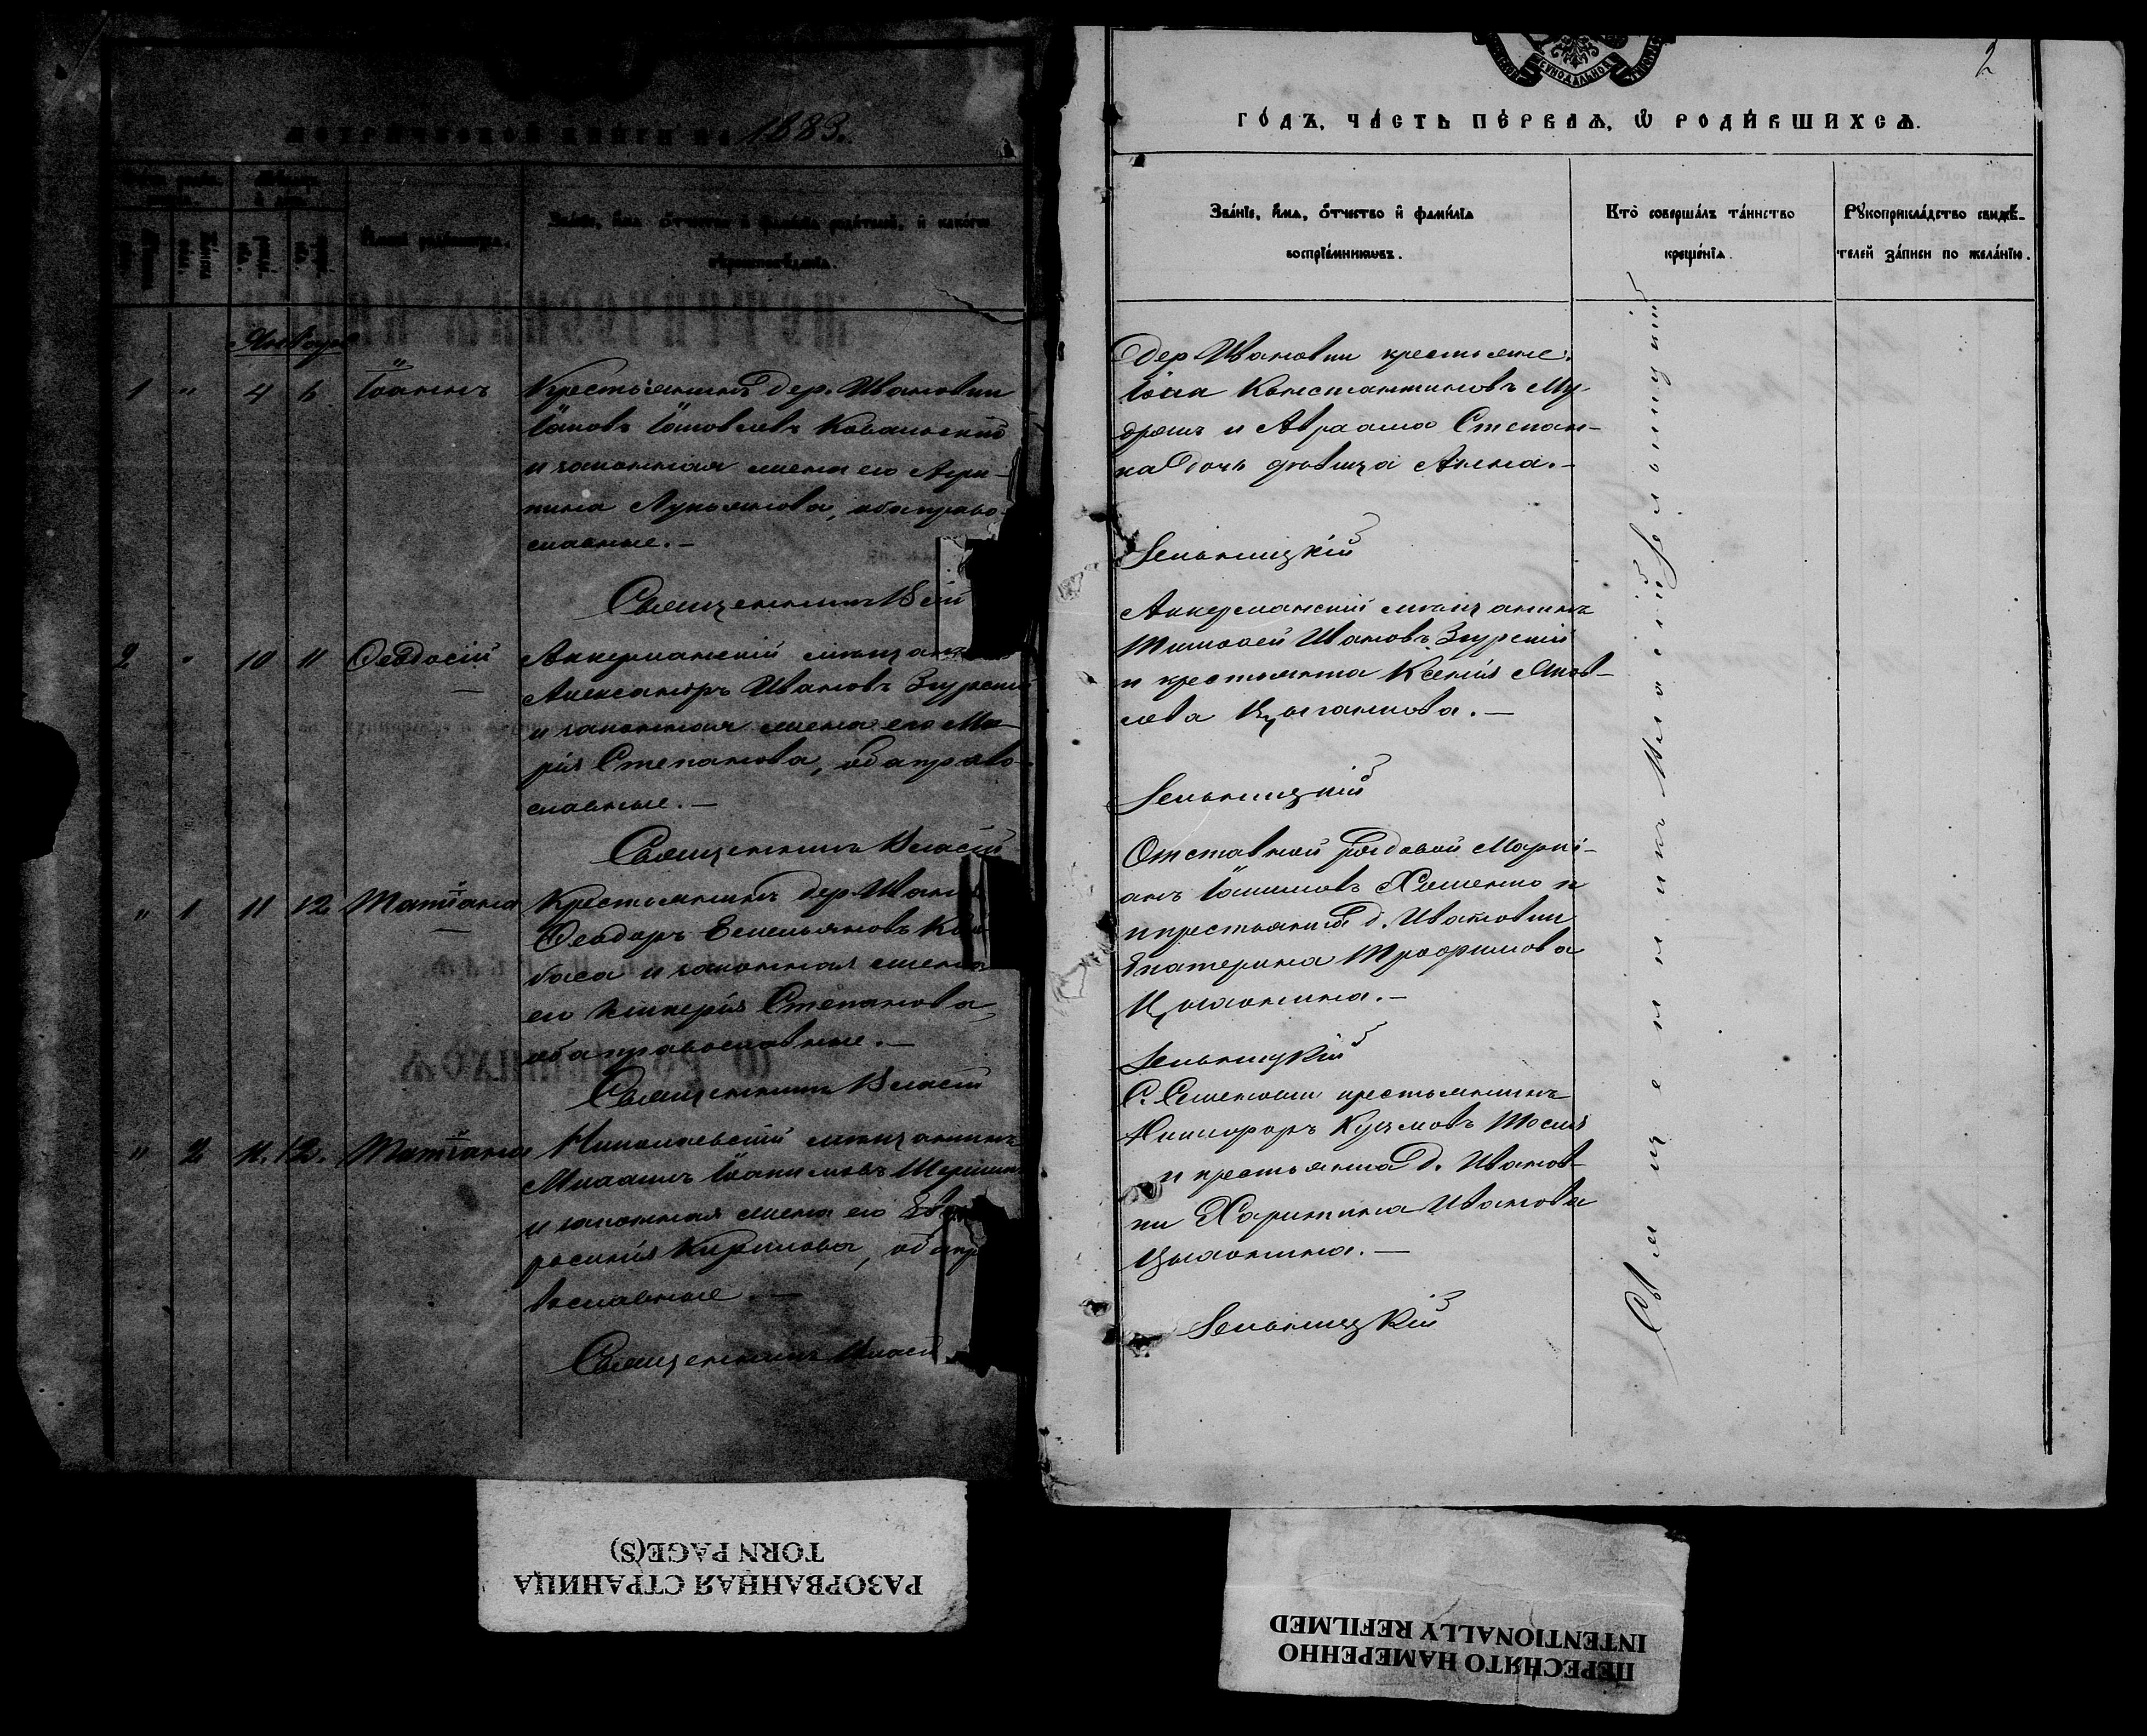 метрической книги на 1883.
Имена родившихся.
Званіе, имя, отчество и фамилія родителей, и какого
вѣроисповѣданія.
Январь
1 " 4 6 Іоаннъ
Крестьянинъ дер. Ивановки
Іаковъ Іаковлевъ Ковальскій
и законная жена его Агри-
пина Лукьянова, оба право-
славные.-
Священникъ
2 " 10 11 Ѳеодосій
Аккерманскій мѣщан
Александръ Ивановъ Згурскі
и законная жена его Ма-
рія Степанова, оба право-
славные.-
Священникъ Власій
" 1 11 12 Татіана
Крестьянинъ дер. Иван
Ѳеодоръ Емельяновъ
баса и законная жена
его Гликерія Степанова,
оба православные.-
Священникъ Власій
" 2 11. 12. Татіана
Николаевскій мѣщанинъ
Михаилъ Іоакимовъ
и законная жена его Ев
росинія Кирилова, оба пр
вославные.-
Священникъ Власі
2
СѴНОДАЛЬНОЙ
ГОДЪ, ЧАСТЬ ПЕРВАЯ, Ѡ РОДИВШИХСЯ.
Званіе, имя, отчество и фамилія
воспріемниковъ.
Кто совершалъ таинство
крещенія.
Рукоприкладство свидѣ-
телей записи по желанію.
Дер. Ивановки крестьяне:
Іона Константиновъ Му-
дракъ и Авраама Степан-
ка дочь дѣвица Анна.-
Зельницкій
Аккерманскій мѣщанинъ
Тимоѳей Ивановъ Згурскій
и крестьянка Ксенія Яков-
лева Цыганкова.-
Зельницкій
Отставной рядовой Маркі-
анъ Іоакимовъ Хоменко и
крестьянка д. Ивановки
Екатерина Трофимова
Цыганкина.-
Зельницкій
С. Семеновки крестьянинъ
Никифоръ Кузьмовъ
и крестьянка д. Иванов-
ки Харитина Иванова
Цыганкина.-
Зельницкій
Священникъ Власій Зельницкій
РАЗОРВАННАЯ СТРАНИЦА
TORN PAGE(S)
ПЕРЕСНЯТО НАМЕРЕННО
INTENTIONALLY REFILMED